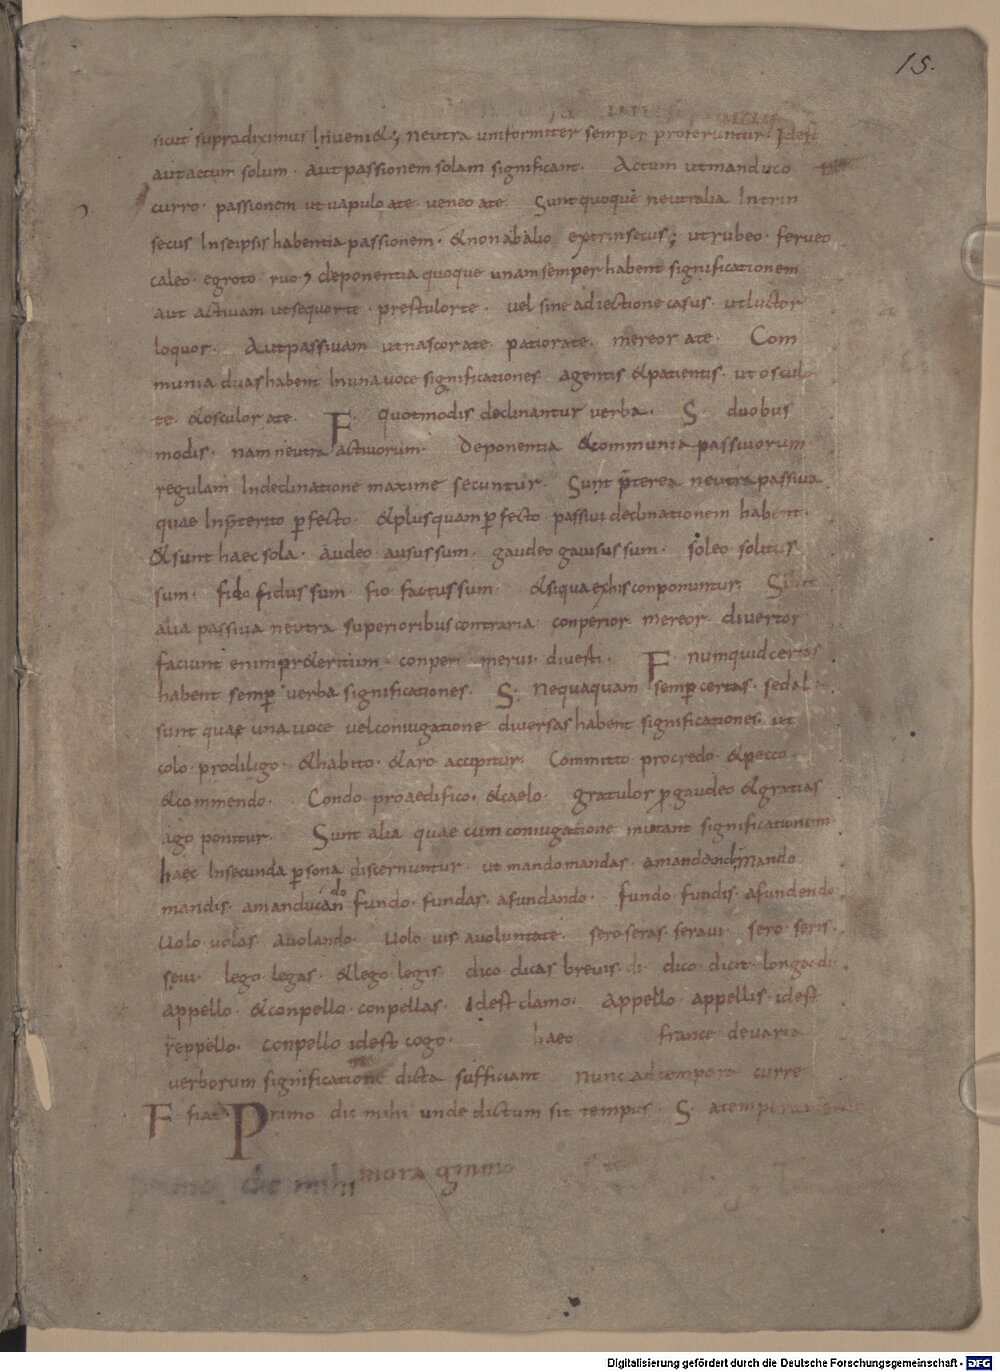 15.
sicut supradiximus Inueni&; neutra uniformiter semper proferuntur. Idest
autactum solum. autpassionem solam significant. Actum utmanduco
curro. passionem utuapulo ate. ueneo ate. Suntquoque neutralia Intrin
secus Inseipsis habentia passionem. &non abalio extrinsecus; utrubeo. ferueo
caleo. egroto. ruo; deponentia quoque unam semper habent significationem
aut actiuam utsequor te. prestulorte. uel sine adiectione casus. utluctor
loquor. Autpassiuam utnascor ate. patiorate. mereor ate. Com
munia duashabent Inuna uoce significationes agentis &patientis. ut osculor
te. &osculor ate. F. quotmodis declinantur uerba. S. duobus
modis. nam neutra actiuorum. Deponentia &communia passiuorum
regulam Indeclinatione maxime secuntur. Sunt p̄terea neutra passiua
quae Inp̄terito perfecto. &plusquamperfecto passiui declinationem habent.
&sunt haec sola. audeo ausus sum. gaudeo gauisus sum. soleo solitus
sum. fido fidus sum. fio factus sum. &siqua exhis conponuntur. Sunt
alia passiua neutra superioribus contraria. conperior. mereor. diuertor
faciunt enim pr&eritum. conperi merui. diuerti. F. numquid certas
habent semper uerba significationes. S. nequaquam semper certas. sed al
sunt quae una uoce uelconiugatione diuersas habent significationes. ut
colo. prodiligo. &habito. &aro accipitur. Committo procredo. &pecco.
&commendo. Condo proaedifico. &caelo. gratulor p̱ gaudeo &gratias
ago ponitur. Sunt alia quae cum coniugatione mutant significationem
haec Insecunda persona discernuntur. ut mando mandas. amandando mando
mandis. amanducando fundo. fundas. afundando. fundo. fundis. afundendo
Uolo uolas. auolando. Uolo uis auoluntate. sero seras. seraui. sero. seris.
seui. lego. legas. &lego. legis. dico dicas breuis. di. dico. dicit. longae di.
appello. &conpello. conpellas. idest clamo. Appello. appellis. idest
reppello. conpello idest cogo. haec france deuaria
uerborum significatione dicta sufficiant nunc ad tempora curre
F. fiat Primo dic mihi unde dictum sit tempus. S. atempera
primo dic mihi mora
Digitalisierung gefördert durch die Deutsche Forschungsgemeinschaft - DFG